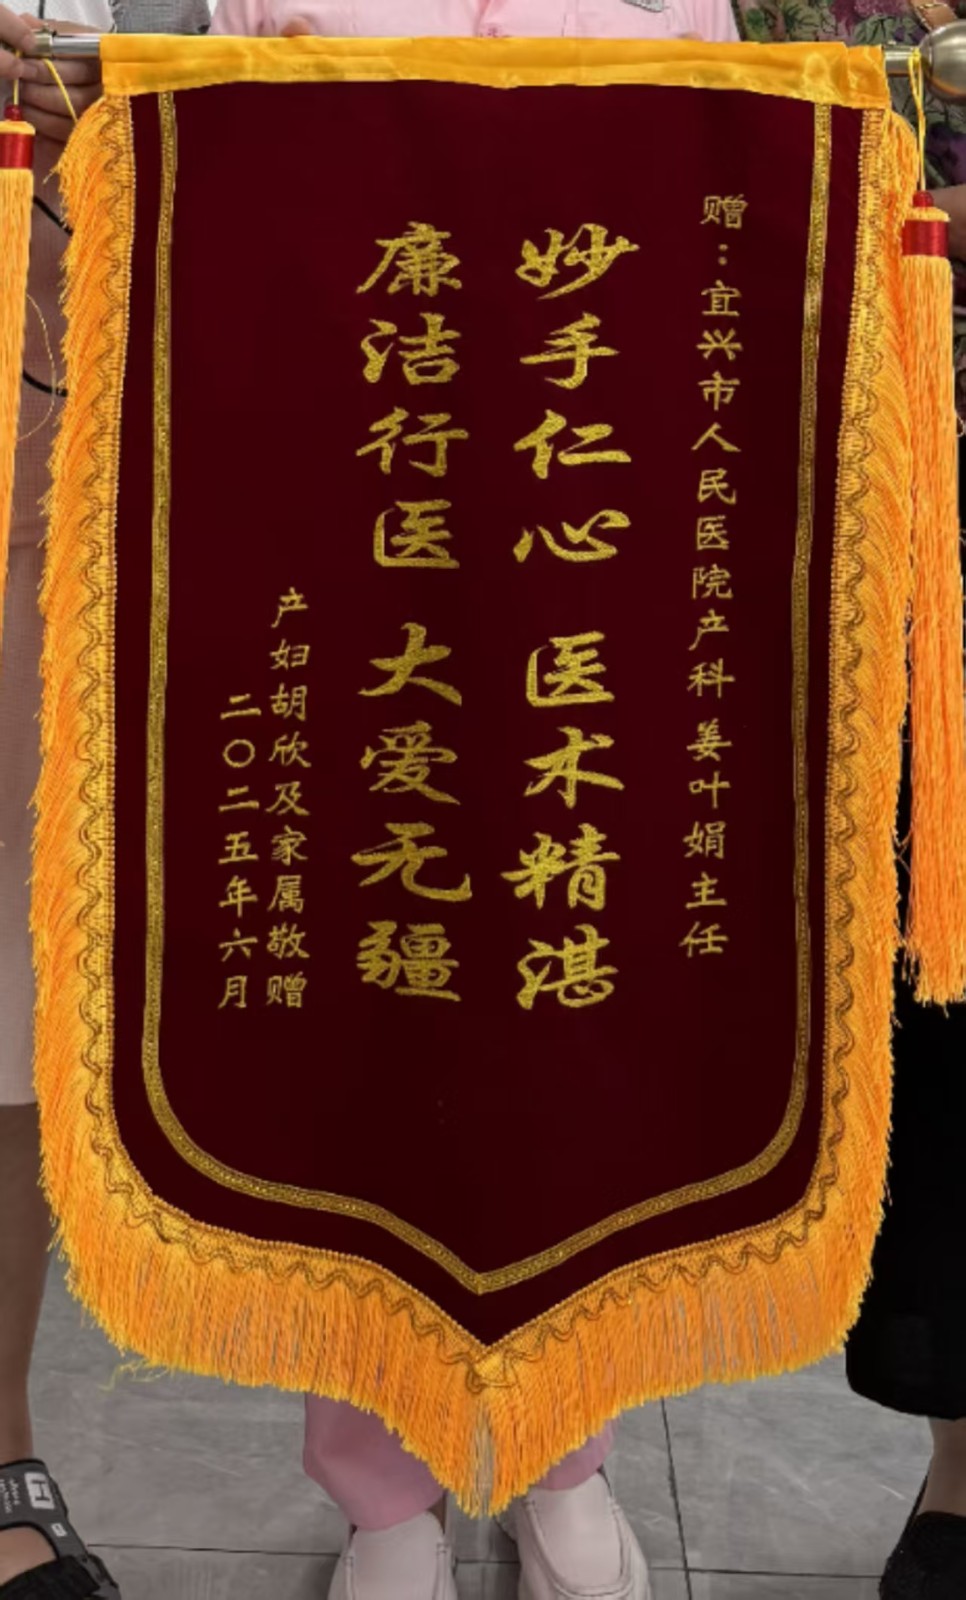 赠：宜兴市人民医院产科 姜叶娟主任
妙手仁心 医术精湛
廉洁行医 大爱无疆
产妇胡欣及家属敬赠
二〇二五年六月